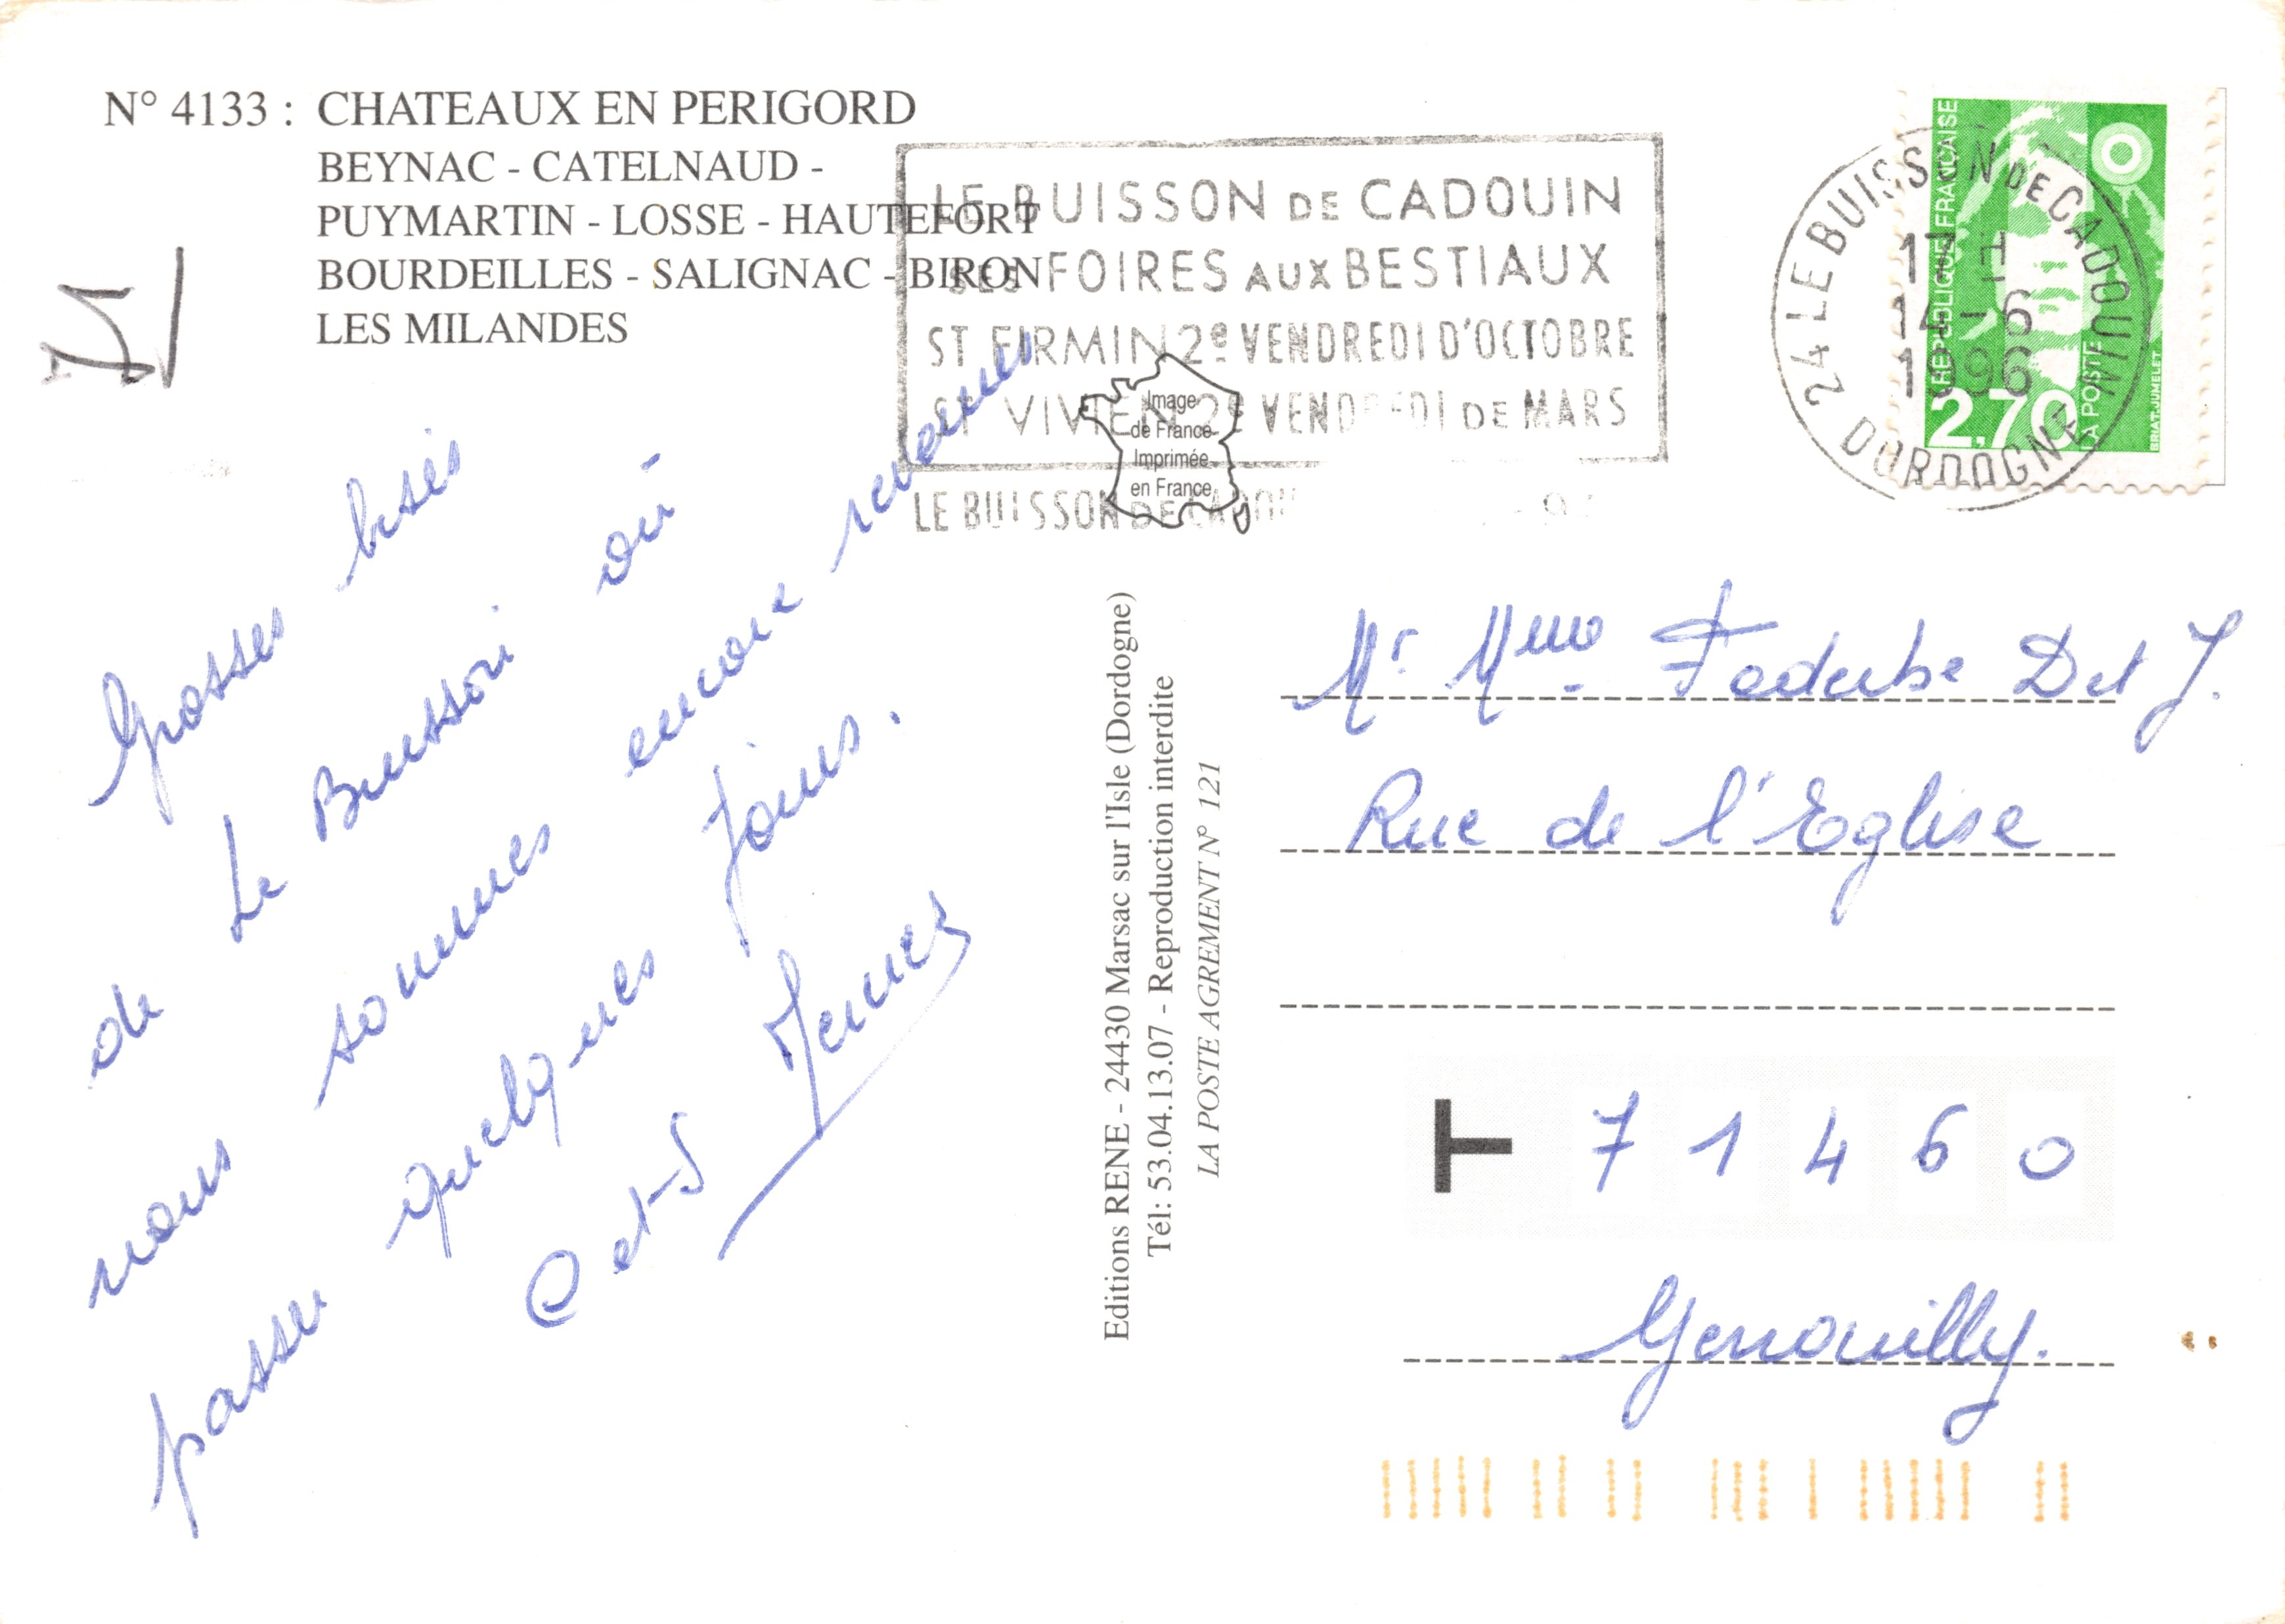 N° 4133 : CHATEAUX EN PERIGORD
BEYNAC - CATELNAUD -
PUYMARTIN - LOSSE - HAUTEFORT
BOURDEILLES - SALIGNAC - BIRON
LES MILANDES
LE BUISSON DE CADOUIN
SES FOIRES AUX BESTIAUX
ST FIRMIN 2e VENDREDI D'OCTOBRE
ST VIVIEN 2e VENDREDI DE MARS
LE BUISSON DE CADOU
Image
de France
Imprimée
en France
24 LE BUISSON DE CADOUIN
17 H
14-6
1996
DORDOGNE
REPUBLIQUE FRANÇAISE
2,70
LA POSTE
BRIAT-JUMELET
Grosses bises
de Le Buisson où
nous sommes encore revenus
passer quelques jours.
et
Editions RENE - 24430 Marsac sur l'Isle (Dordogne)
Tél: 53.04.13.07 - Reproduction interdite
LA POSTE AGREMENT N° 121
Mr. Mme J.
Rue de l'Eglise
71460
Genouilly.